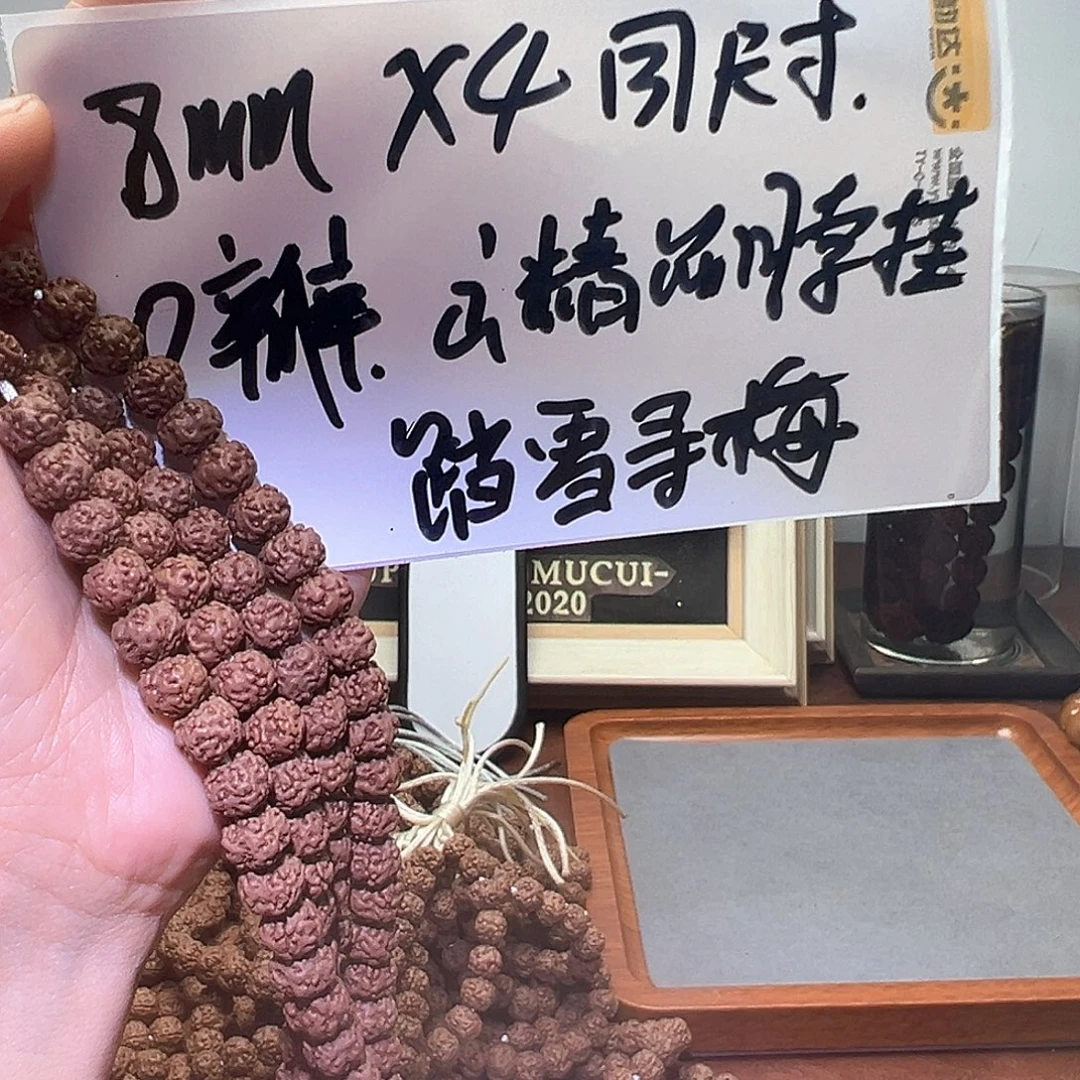 8mm X4 同尺.
瓣. 精品脖挂
踏雪寻梅
MUCUI-
2020